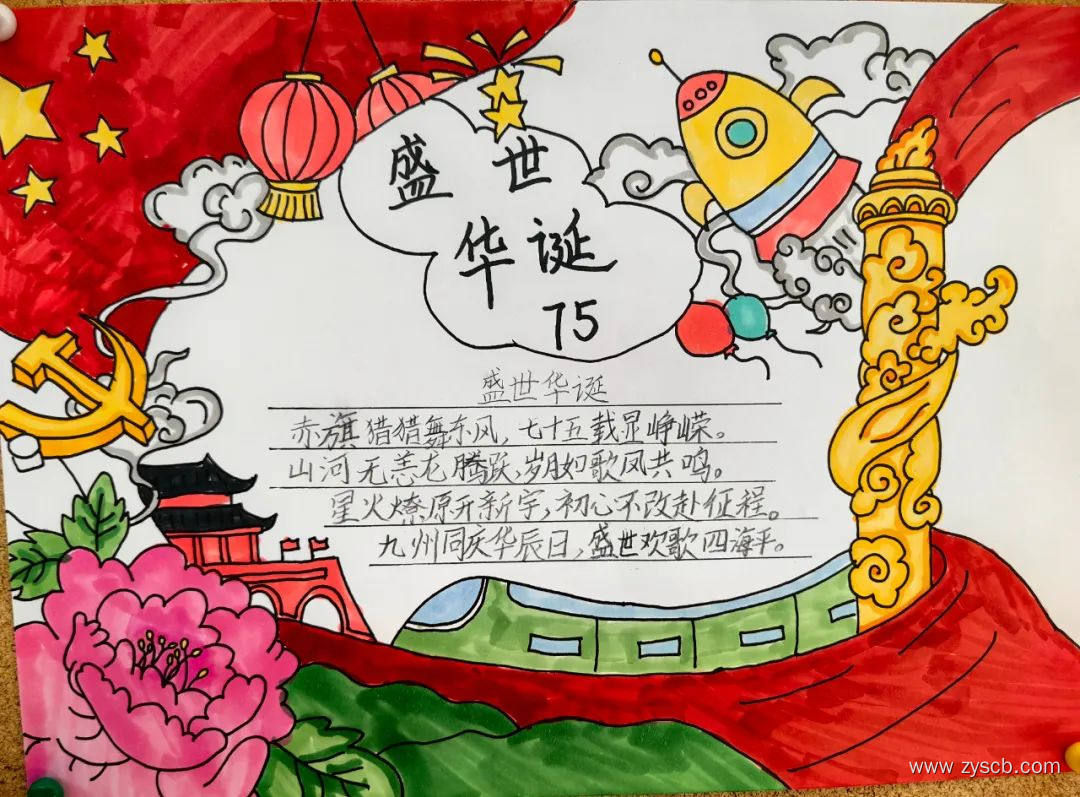 盛世
华诞
75
盛世华诞
赤旗猎猎舞东风，七十五载显峥嵘。
山河无恙龙腾跃，岁月如歌凤共鸣。
星火燎原开新宇，初心不改赴征程。
九州同庆华辰日，盛世欢歌四海平。
www.zyscb.com